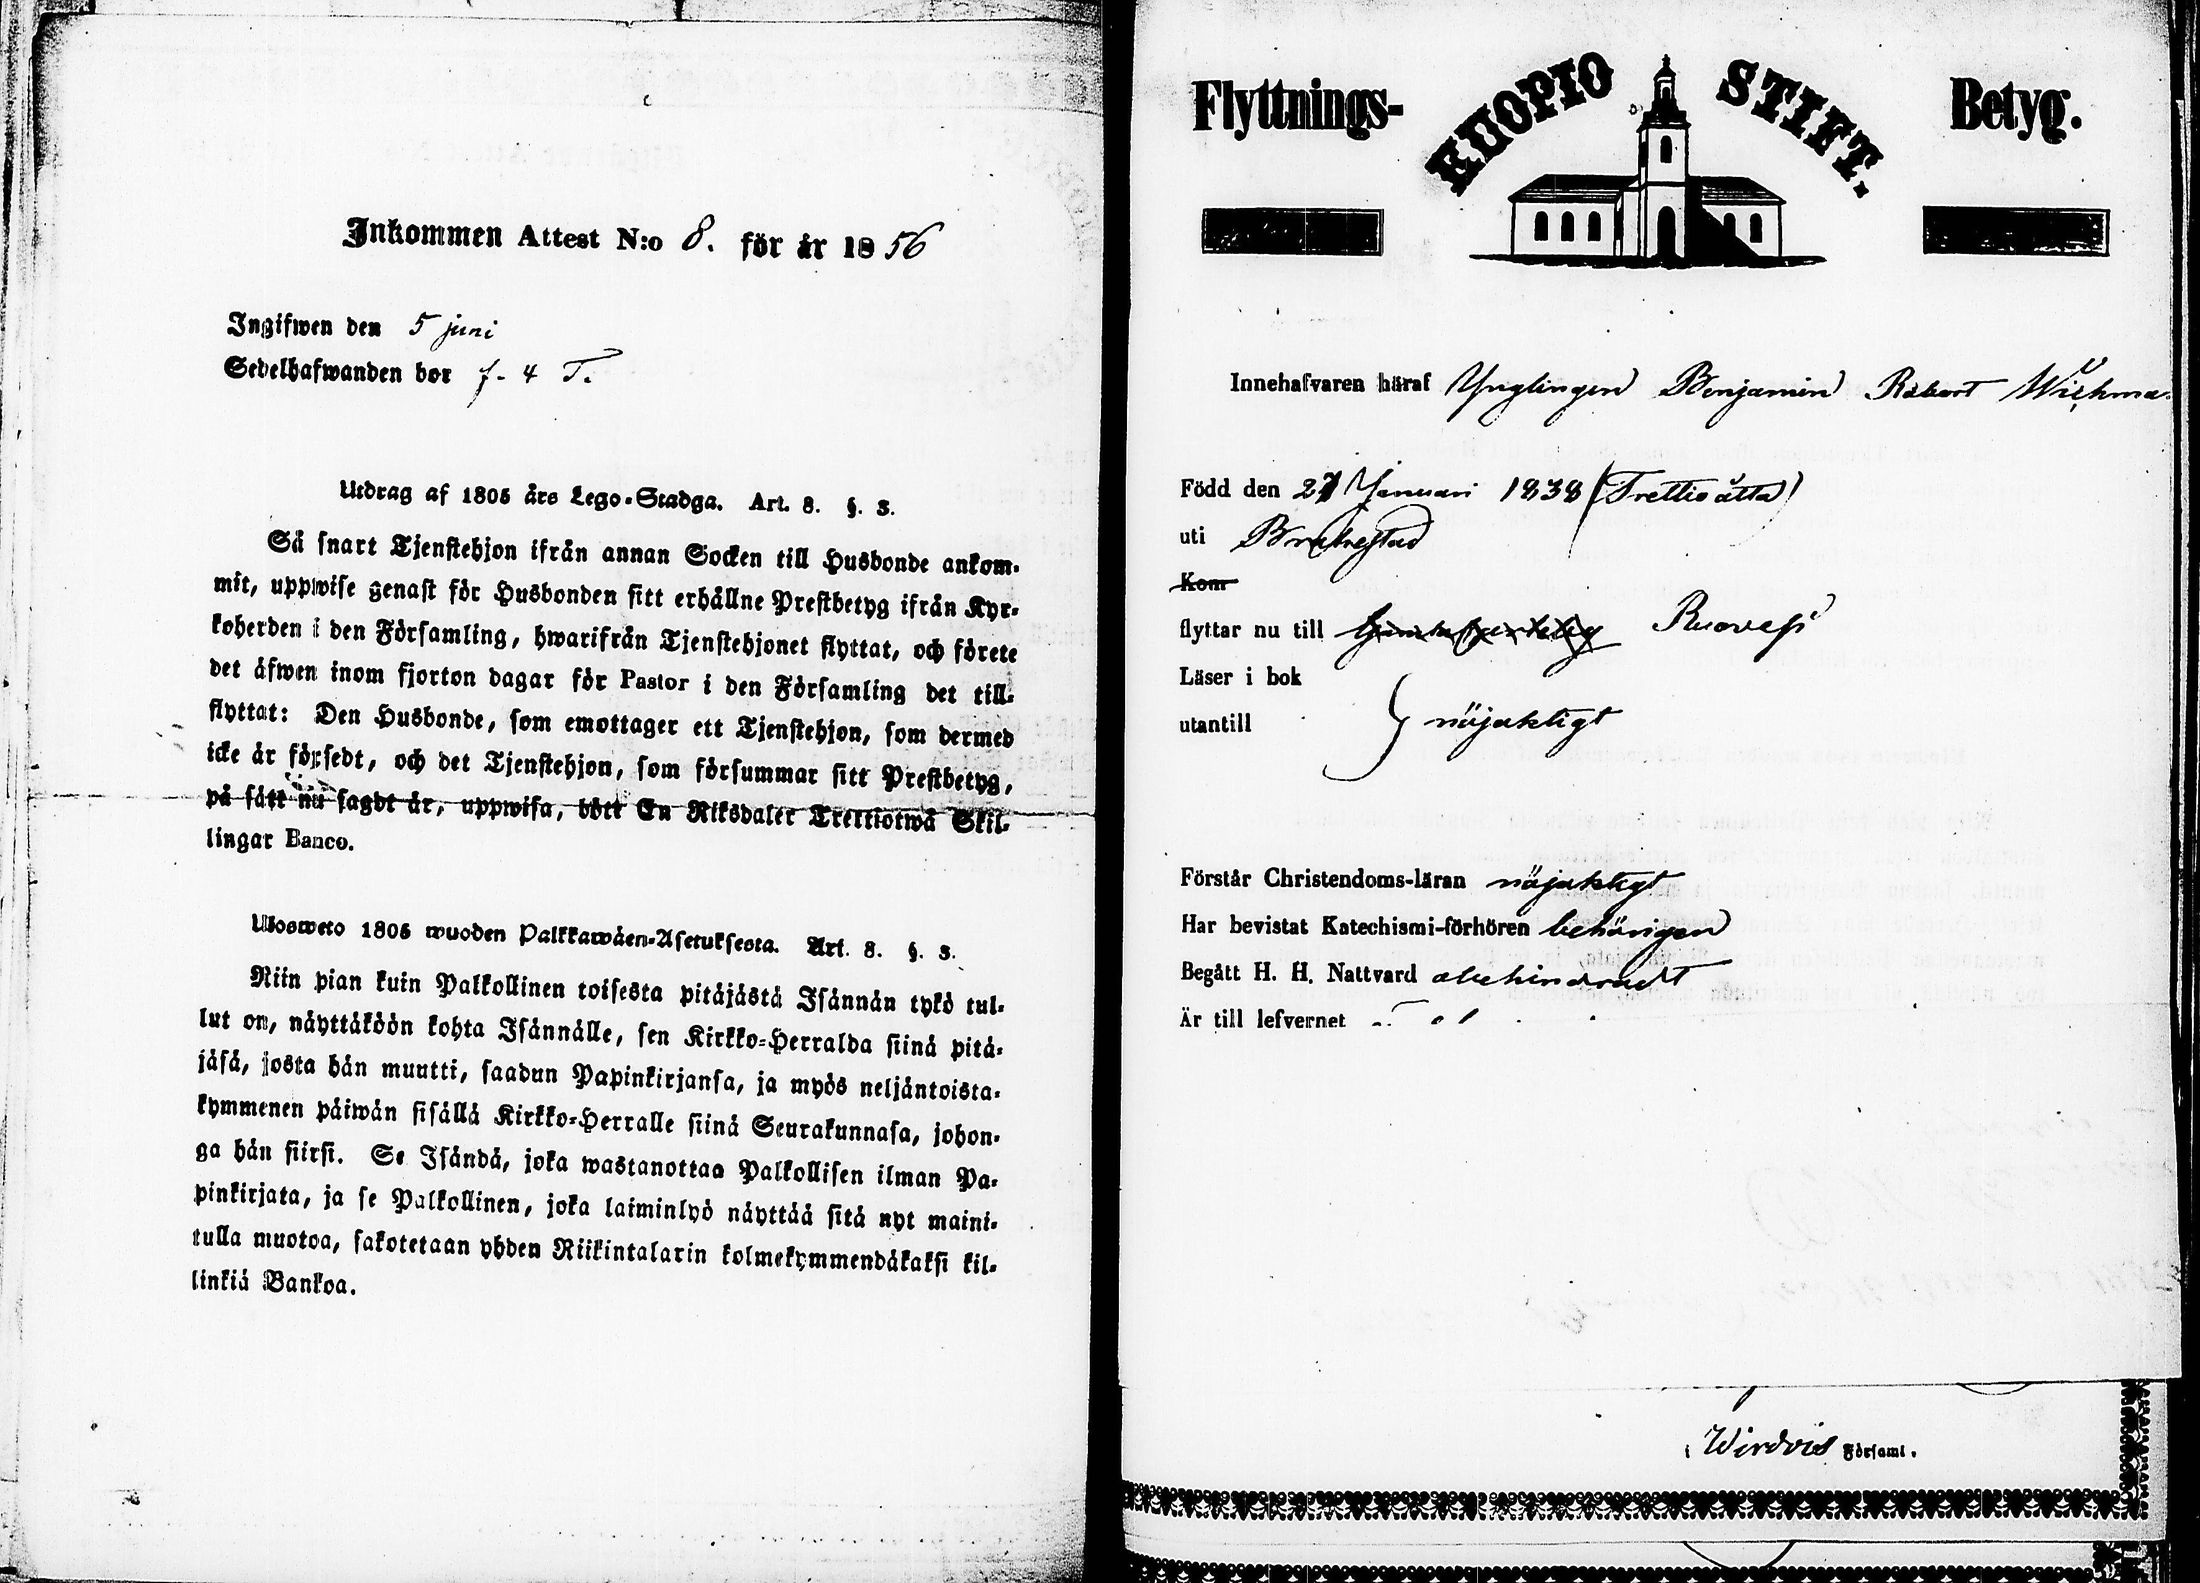 Inkommen Attest N:o 8. för år 1856
Ingifwen den 5 juni
Sedelhafwanden bor f. 4 T.
Utdrag af 1805 års Lego-Stadga. Art. 8. §. 3.
Så snart Tjenstehjon ifrån annan Socken till Husbonde ankom-
mit, uppwise genast för Husbonden sitt erhållne Prestbetyg ifrån Kyr-
koherden i den Församling, hwarifrån Tjenstehjonet flyttat, och förete
det äfwen inom fjorton dagar för Pastor i den Församling det till-
flyttat: Den Husbonde, som emottager ett Tjenstehjon, som dermed
icke är försedt, och det Tjenstehjon, som försummar sitt Prestbetyg,
på sätt nu sagdt är, uppwisa, böte En Riksdaler Trettiotwå Skil-
lingar Banco.
Ulosweto 1805 wuoden Palkkawäen-Asetuksesta. Art. 8. §. 3.
Niin pian kuin Palkollinen toisesta pitäjästä Isännän tykö tul-
lut on, näyttäköön kohta Isännälle, sen Kirkko-Herralda siinä pitä-
jäsä, josta hän muutti, saadun Papinkirjansa, ja myös neljäntoista-
kymmenen päiwän sisällä Kirkko-Herralle siinä Seurakunnasa, johon-
ga hän siirsi. Se Isändä, joka wastanottaa Palkollisen ilman Pa-
pinkirjata, ja se Palkollinen, joka laiminlyö näyttää sitä nyt maini-
tulla muotoa, sakotetaan yhden Riikintalarin kolmekymmendäkaksi kil-
linkiä Bankoa.
Flyttnings- KUOPIO STIFT. Betyg.
Innehafvaren häraf Ynglingen Benjamin Robert Wichma
Född den 27 Januari 1838 (Trettioåtta)
uti Brahestad
Kom
flyttar nu till Ruovesi
Läser i bok
utantill } nöjaktigt
Förstår Christendoms-läran nöjaktigt
Har bevistat Katechismi-förhören behörigen
Begått H. H. Nattvard obehindradt
Är till lefvernet
i Wirdois Församl.